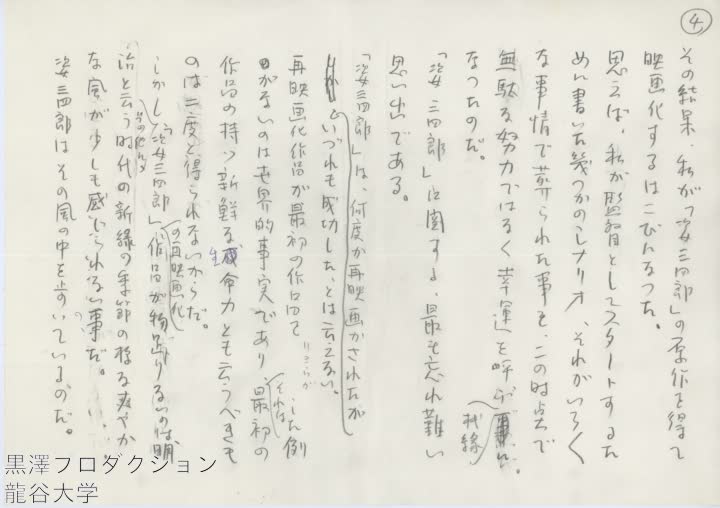 4
その結果、私が「姿三四郎」の原作を得て
映画化するはこびになった。
思えば、私が監督としてスタートするた
めに書いた幾つかのシナリオ、それがいろく
な事情で葬られた事も、この時点で
無駄な努力ではなく幸運を呼ぶ
機縁
なったのだ。
「姿三四郎」に関する、最も忘れ難い
思い出である。
「姿三四郎」は、何度か再映画かされたが
いづれも成功したとは云えない。
再映画化作品が最初の作品を
した例
がないのは世界的事実であり、
それは
最初の
作品の持つ新鮮な生命力とも云うべきも
のは二度と得られないからだ。
しかし「姿三四郎」
の再映画化
作品が物足りないのは、明
治と云う時代の新緑の季節の様な爽やか
な風が少しも感じられない事だ。
姿三四郎はその風の中を歩いているのだ。
黒澤プロダクション
龍谷大学